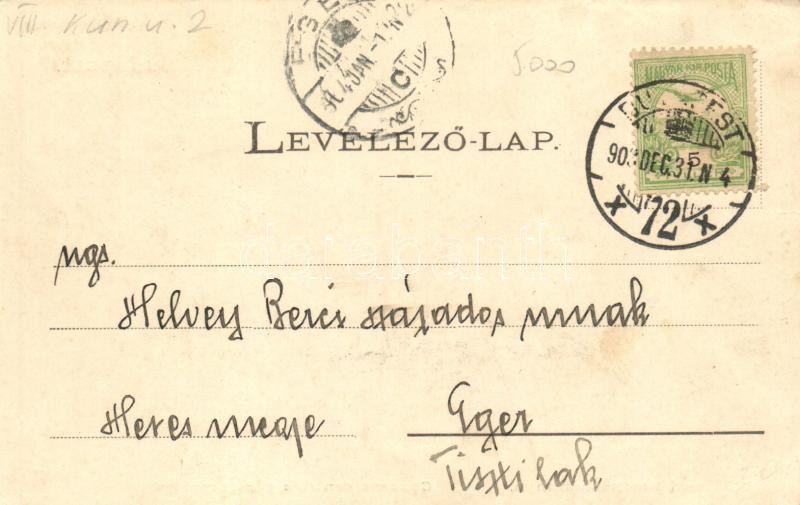 VIII Kun u. 2
5000
MAGYAR KIR. POSTA
5
BUDAPEST
903 DEC. 31. N 4
72
904 JAN - 1 N
C
LEVELEZŐ-LAP.
ngs.
Helvey Berci százados urnak
Heves megye Eger
Tiszti lak
darabanth